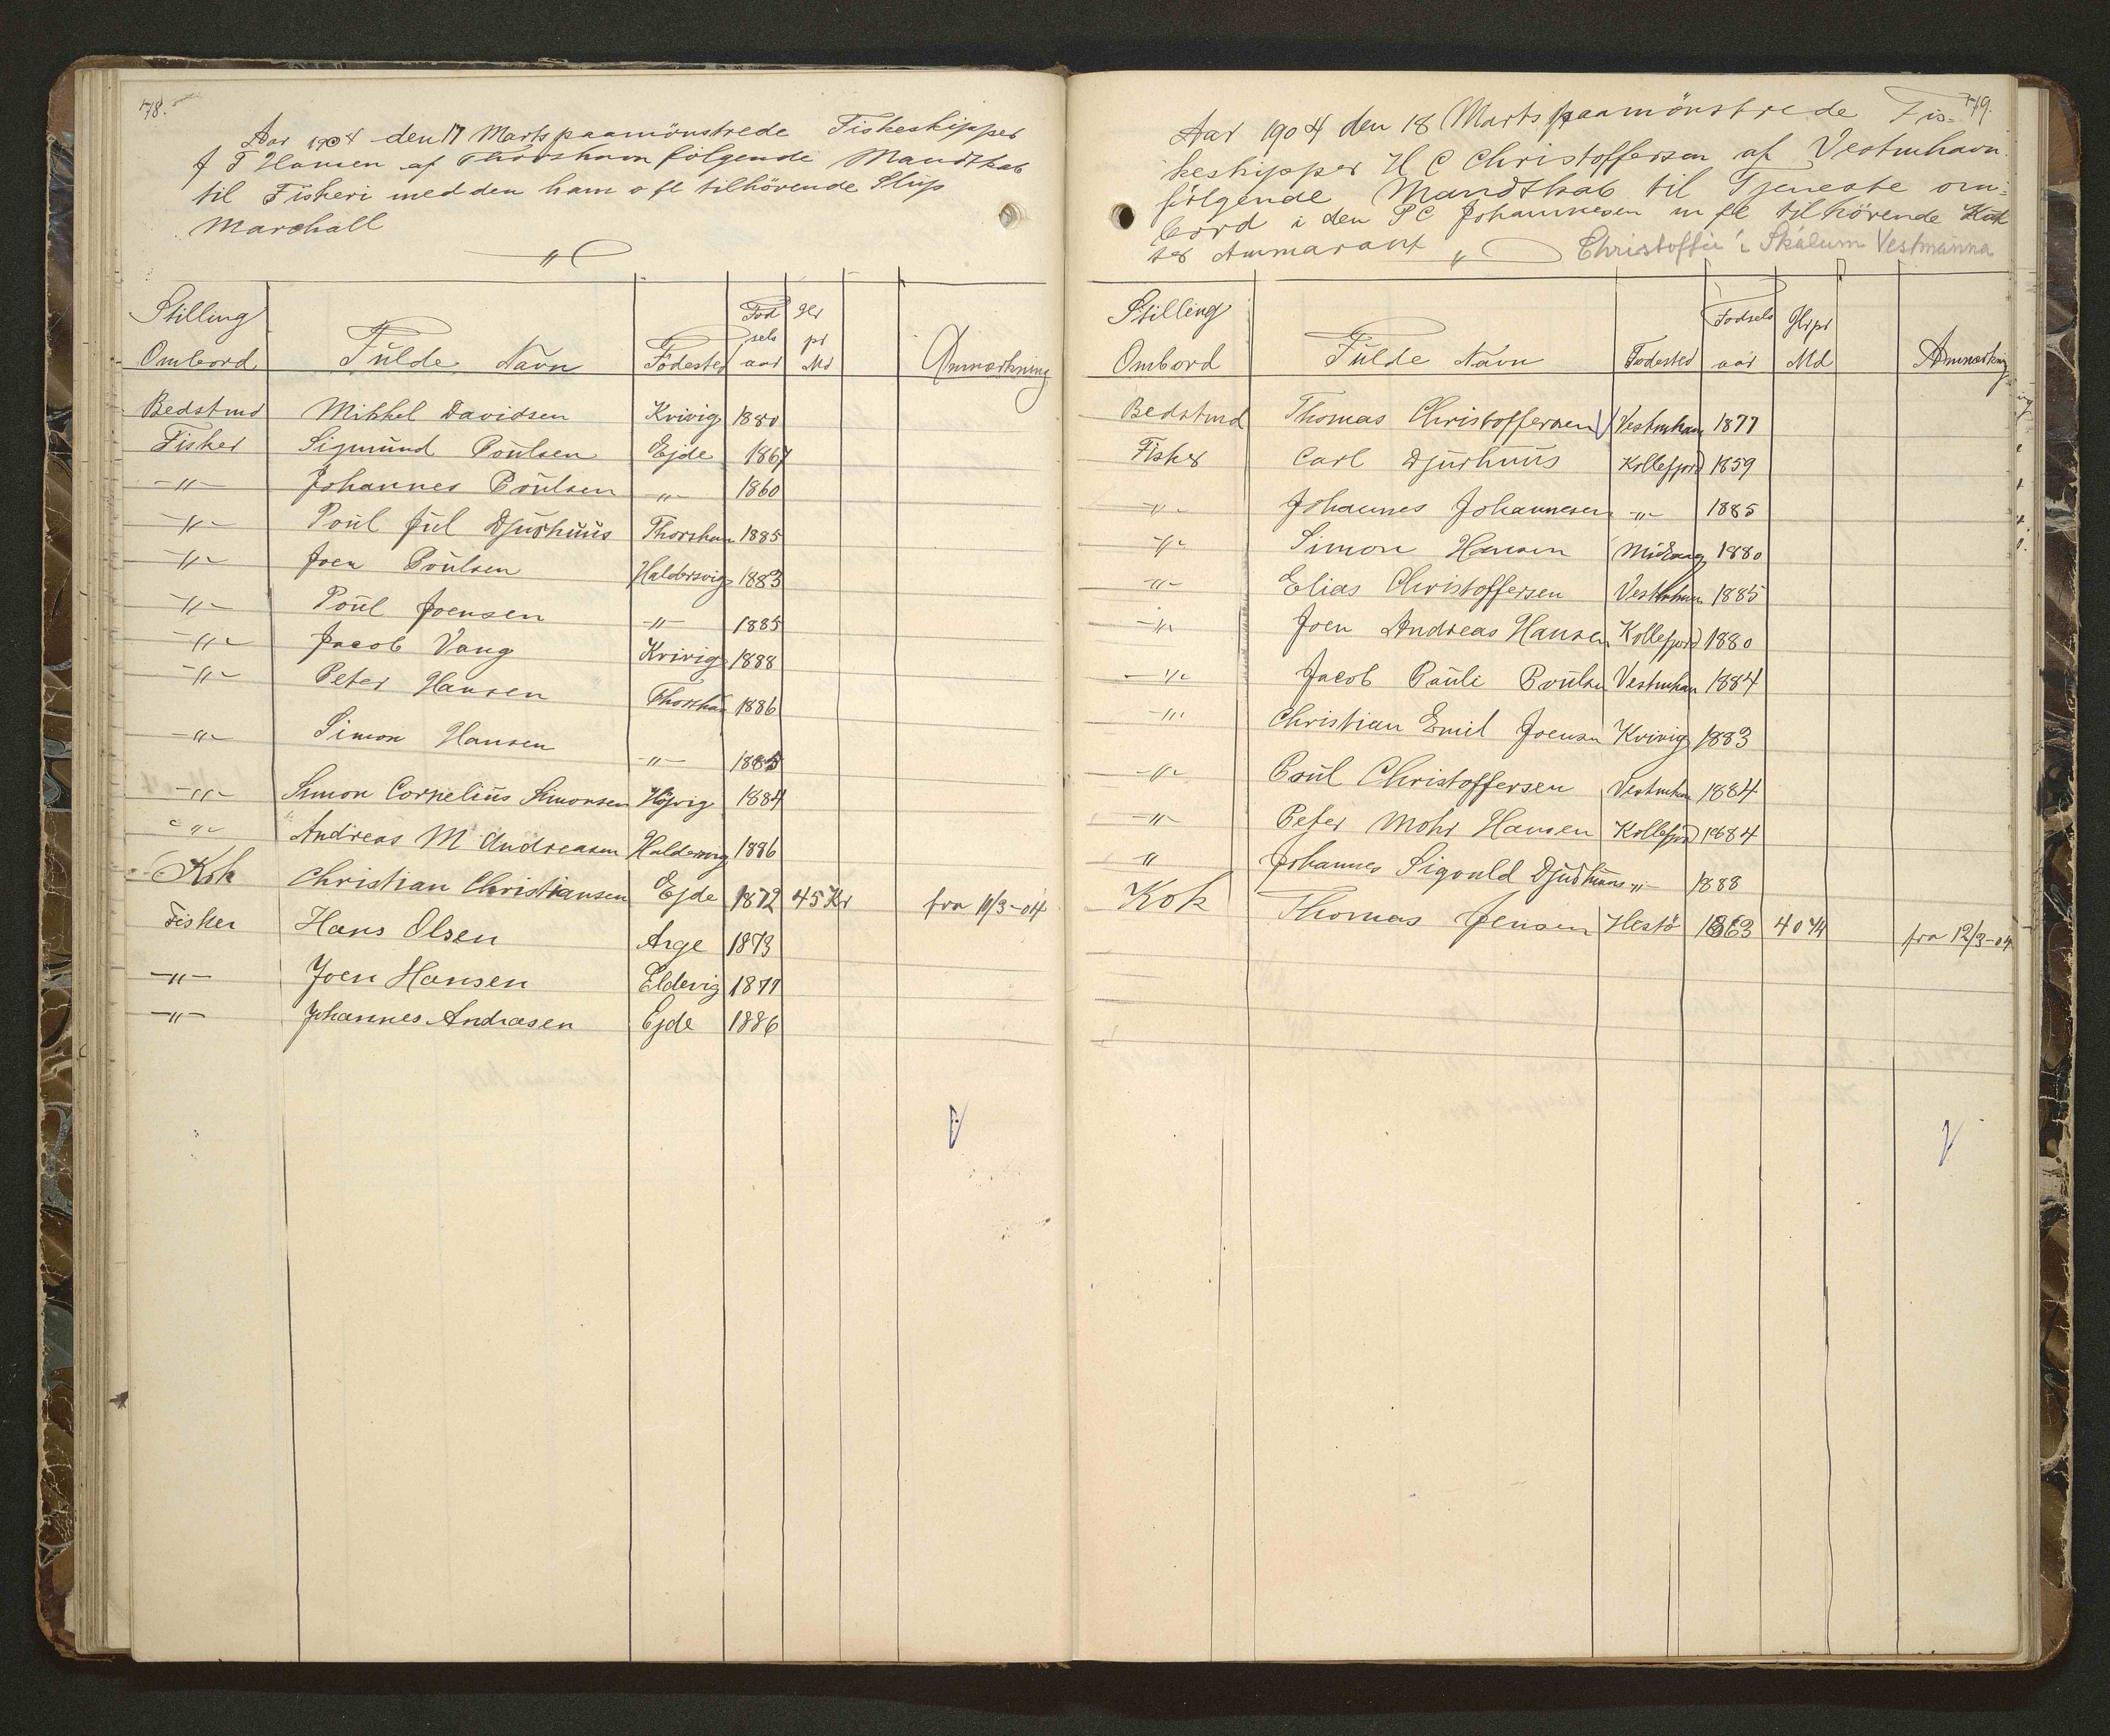 78.
Aar 1904 den 17 Marts paamönstrede Fiskeskipper
J T Hansen af Thorshavn följende Mandskab
til Fiskeri med den ham o fl tilhörende Slup
Marshall
Stilling Ombord Fulde Navn Födested Födselsaar Hr pr Md Anmærkning
Bedstmd Mikkel Davidsen Kvivig 1880
Fisker Sigmund Poulsen Ejde 1867
-"- Johannes Poulsen -"- 1860
-"- Poul Jul Djurhuus Thorshavn 1885
-"- Joen Poulsen Haldersvig 1883
-"- Poul Joensen -"- 1885
-"- Jacob Vang Kvivig 1888
-"- Peter Hansen Thorshavn 1886
-"- Simon Hansen -"- 1885
-"- Simon Cornelius Simonsen Höjvig 1884
-"- Andreas M Andreasen Haldersvig 1886
Kok Christian Christiansen Ejde 1872 45 Kr fra 11/3-04
Fisker Hans Olsen Arge 1873
-"- Joen Hansen Eldevig 1877
-"- Johannes Andreasen Ejde 1886
79.
Aar 1904 den 18 Marts paamönstrede Fis=
keskipper H C Christoffersen af Vestmhavn
fölgende Mandskab til Tjeneste om=
bord i den P C Johannesen m fl tilhörende Kut
ter Ammarant " Christoffer í Skálum Vestmanna
Stilling Ombord Fulde Navn Födested Födselsaar Hr pr Md Anmærkning
Bedstmd Thomas Christoffersen Vestmhavn 1877
Fisker Carl Djurhuus Kollefjord 1859
-"- Johannes Johannesen -"- 1885
-"- Simon Hansen Midvaag 1880
-"- Elias Christoffersen Vestmhavn 1885
-"- Joen Andreas Hansen Kollefjord 1880
-"- Jacob Pauli Poulsen Vestmhavn 1884
-"- Christian Emil Joensen Kvivig 1883
-"- Poul Christoffersen Vestmhavn 1884
-"- Peter Mohr Hansen Kollefjord 1884
" Johannes Sigvald Djurhuus -"- 1888
Kok Thomas Jensen Hestö 1863 40 Kr fra 12/3-04